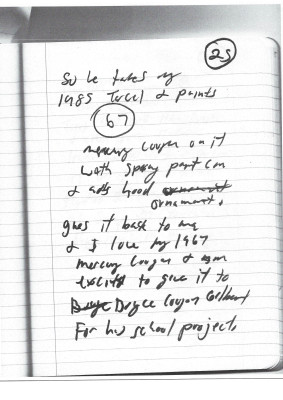 25
So he takes my
1985 Tercel & paints
67
mercury Cougar on it
with spray paint can
& adds hood ornament
ornament.
gives it back to me
& I love my 1967
mercury Cougar & am
excited to give it to
Doyce Cougar
For his school project.